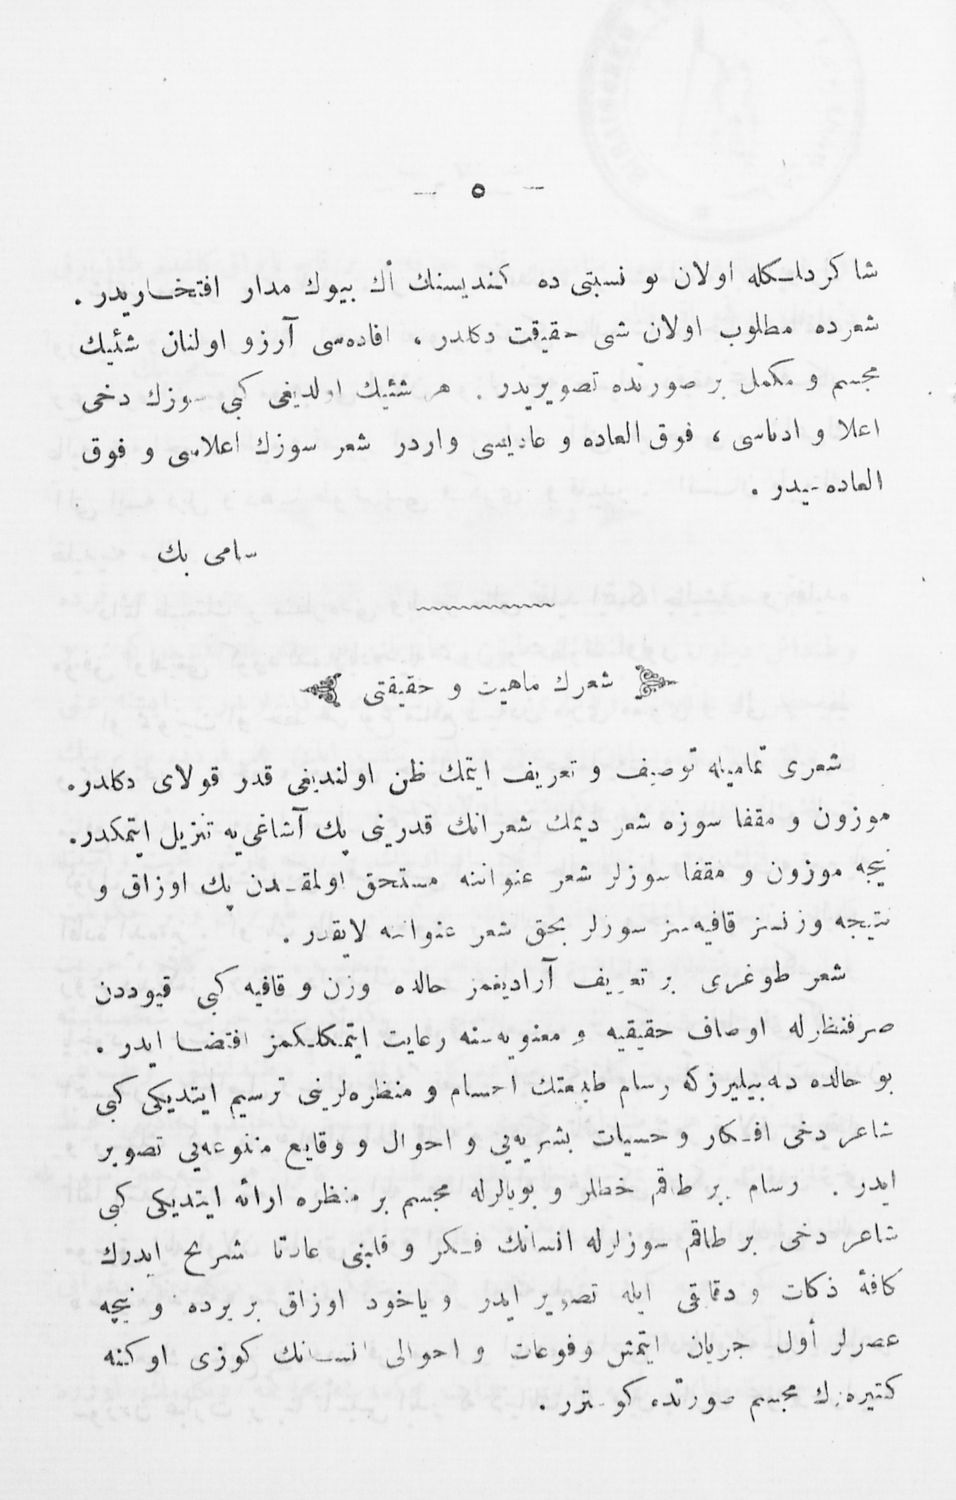 — ٥ —
شاكردلكله اولان بو نسبتى ده كنديسنك أك بيوك مدار افتخاريدر .
شعرده مطلوب اولان شى حقيقت دكلدر ، افاده‌سى آرزو اولنان شئيك
مجسم و مكمل بر صورتده تصويريدر . هر شئيك اولديغى كبى سوزك دخى
اعلا و ادناسى ، فوق العاده و عاديسى واردر شعر سوزك اعلاسى و فوق
العاده‌سيدر .
سامى بك
شعرك ماهيت و حقيقتى
شعرى تماميله توصيف و تعريف ايتمك ظن اولنديغى قدر قولاى دكلدر.
موزون و مقفا سوزه شعر ديمك شعرانك قدرينى پك آشاغى‌يه تنزيل ايتمكدر.
نيجه موزون و مقفا سوزلر شعر عنواننه مستحق اولمقدن پك اوزاق و
نتيجه وزنسز قافيه‌سز سوزلر بحق شعر عنواننه لايقدر .
شعر طوغرى بر تعريف آراديغمز حالده وزن و قافيه كبى قيوددن
صرفنظرله اوصاف حقيقيه و معنويه‌سنه رعايت ايتمكلكمز اقتضا ايدر .
بو حالده ده‌بيليرزكه رسام طبيعتك اجسام و منظره‌لرينى ترسيم ايتديكى كبى
شاعر دخى افكار و حسيات بشريه‌يى و احوال و وقايع متنوعه‌يى تصوير
ايدر . رسام بر طاقم خطلر و بويالرله مجسم بر منظره ارائه ايتديكى كبى
شاعر دخى بر طاقم سوزلرله انسانك فكر و قلبنى عادتا شرح ايدرك
كافهٔ نكات و دقايقى ايله تصوير ايدر و ياخود اوزاق بر يرده و نيجه
عصرلر أول جريان ايتمش وقوعات و احوالى انسانك كوزى اوكنه
كتيره‌رك مجسم صورتده كوسترر .